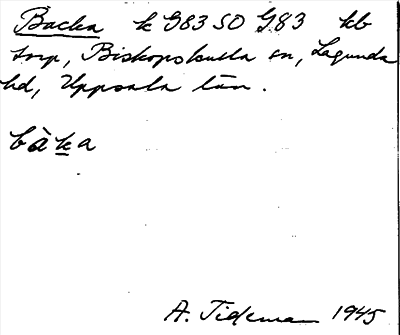 Backa k G83 SO G83 kb
torp, Biskopskulla sn, Lagunda
hd, Uppsala län.
bàka
A. Tideman 1945